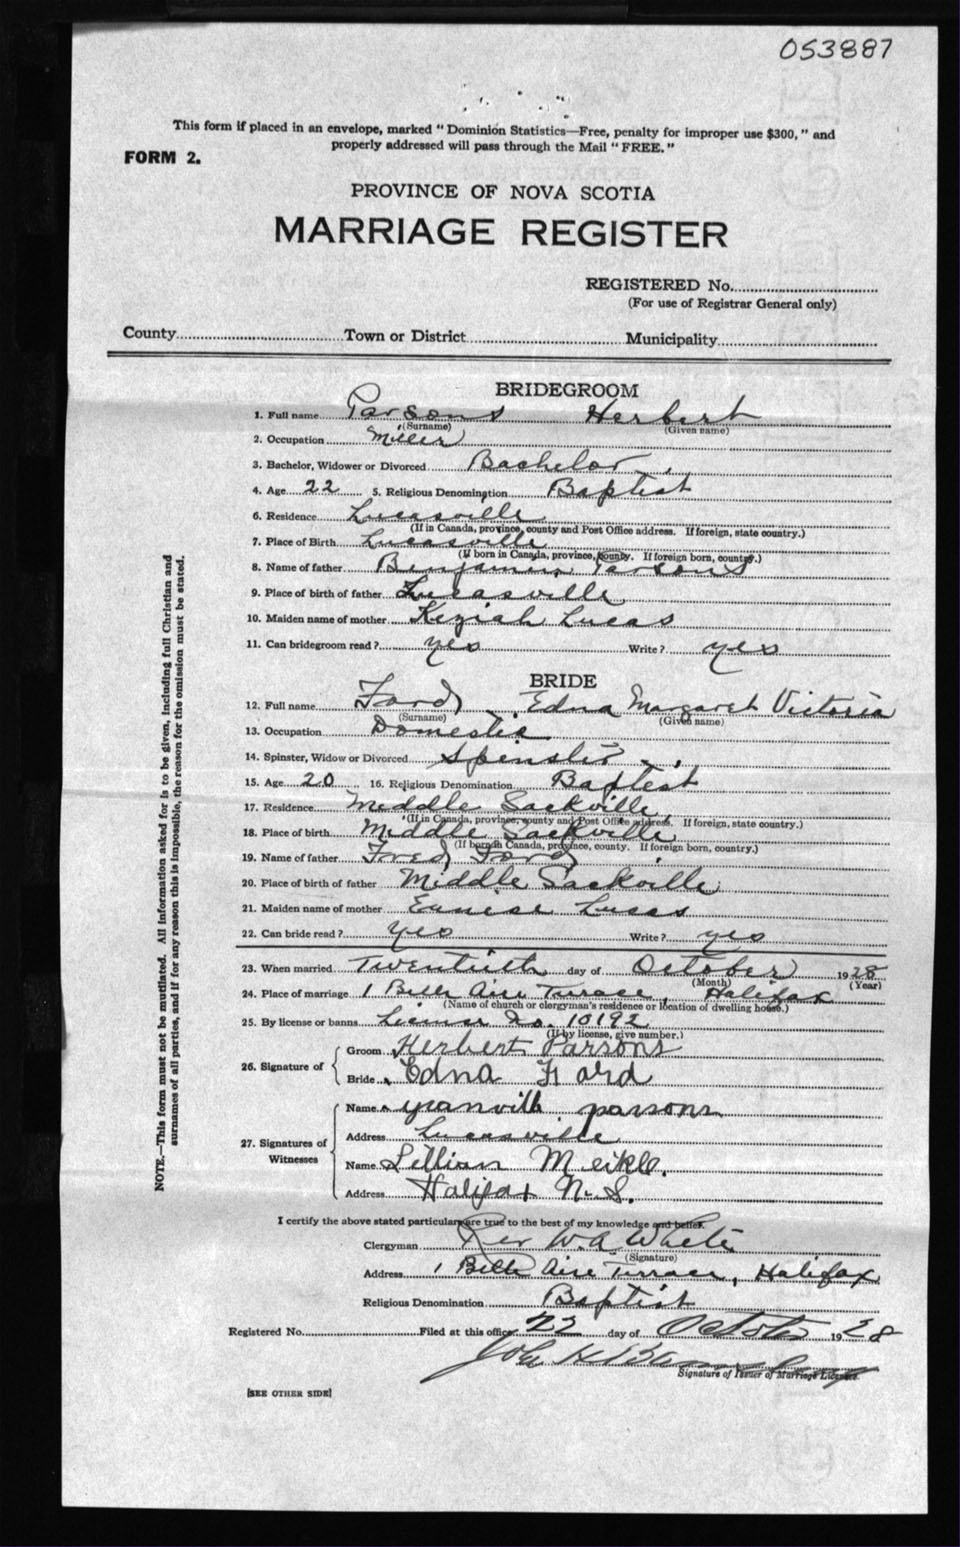 053887
This form if placed in an envelope, marked "Dominion Statistics—Free, penalty for improper use $300," and
properly addressed will pass through the Mail "FREE."
FORM 2.
PROVINCE OF NOVA SCOTIA
MARRIAGE REGISTER
REGISTERED No.
(For use of Registrar General only)
County Town or District Municipality
BRIDEGROOM
1. Full name Parsons Herbert
(Surname) (Given name)
2. Occupation Miller
3. Bachelor, Widower or Divorced Bachelor
4. Age 22 5. Religious Denomination Baptist
6. Residence Lucasville
(If in Canada, province, county and Post Office address. If foreign, state country.)
7. Place of Birth Lucasville
(If born in Canada, province, county. If foreign born, country.)
8. Name of father Benjamin Parsons
9. Place of birth of father Lucasville
10. Maiden name of mother Keziah Lucas
11. Can bridegroom read? yes Write? yes
BRIDE
12. Full name Ford Edna Margaret Victoria
(Surname) (Given name)
13. Occupation Domestic
14. Spinster, Widow or Divorced Spinster
15. Age 20 16. Religious Denomination Baptist
17. Residence Middle Sackville
(If in Canada, province, county and Post Office address. If foreign, state country.)
18. Place of birth Middle Sackville
(If born in Canada, province, county. If foreign born, country.)
19. Name of father Fred Ford
20. Place of birth of father Middle Sackville
21. Maiden name of mother Eunice Lucas
22. Can bride read? yes Write? yes
23. When married Twentieth day of October 1928
(Month) (Year)
24. Place of marriage 1 Belle Aire Terrace, Halifax
(Name of church or clergyman's residence or location of dwelling house.)
25. By license or banns License No. 10192
(If by license, give number.)
26. Signature of
Groom Herbert Parsons
Bride Edna Ford
27. Signatures of Witnesses
Name granvill parsons
Address Lucasville
Name Lillian Meikle.
Address Halifax N.S.
I certify the above stated particulars are true to the best of my knowledge and belief.
Clergyman Rev W.A White
(Signature)
Address 1 Belle Aire Terrace, Halifax
Religious Denomination Baptist
Registered No. Filed at this office 22 day of October 1928
John H
Signature of Issuer of Marriage Licenses.
[SEE OTHER SIDE]
NOTE.—This form must not be mutilated. All information asked for is to be given, including full Christian and
surnames of all parties, and if for any reason this is impossible, the reason for the omission must be stated.